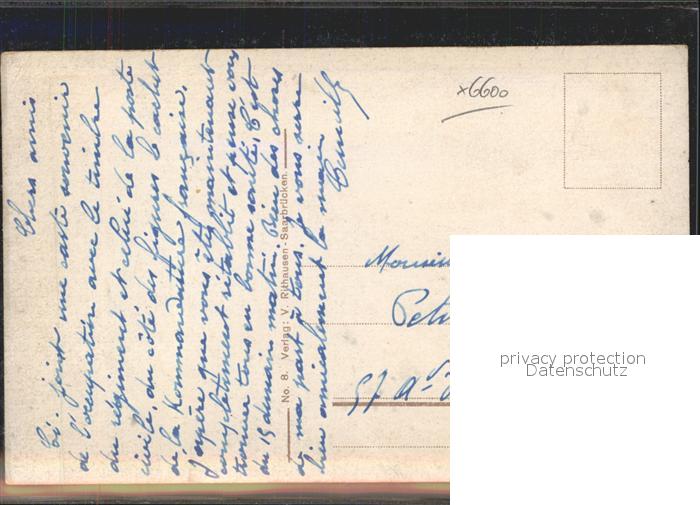 Chers amis
Ci-joint une carte souvenir
de l'occupation avec le timbre
du régiment et celui de la poste
civile, du côté des figures le cachet
de la Kommandature française.
J'espère que vous êtes maintenant
complètement rétablit et pense vous
trouver tous en bonne santé. C'est
du 19 demain matin. Bien des choses
de ma part à tous. Je vous serre
bien amicalement la main
No. 8. Verlag: V. Rithausen-Saarbrücken.
x6600
Monsieu
Peti
57 Ad
privacy protection
Datenschutz